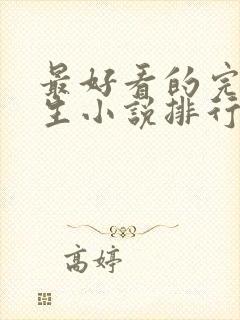 最好看的完
生小说排行
高婷